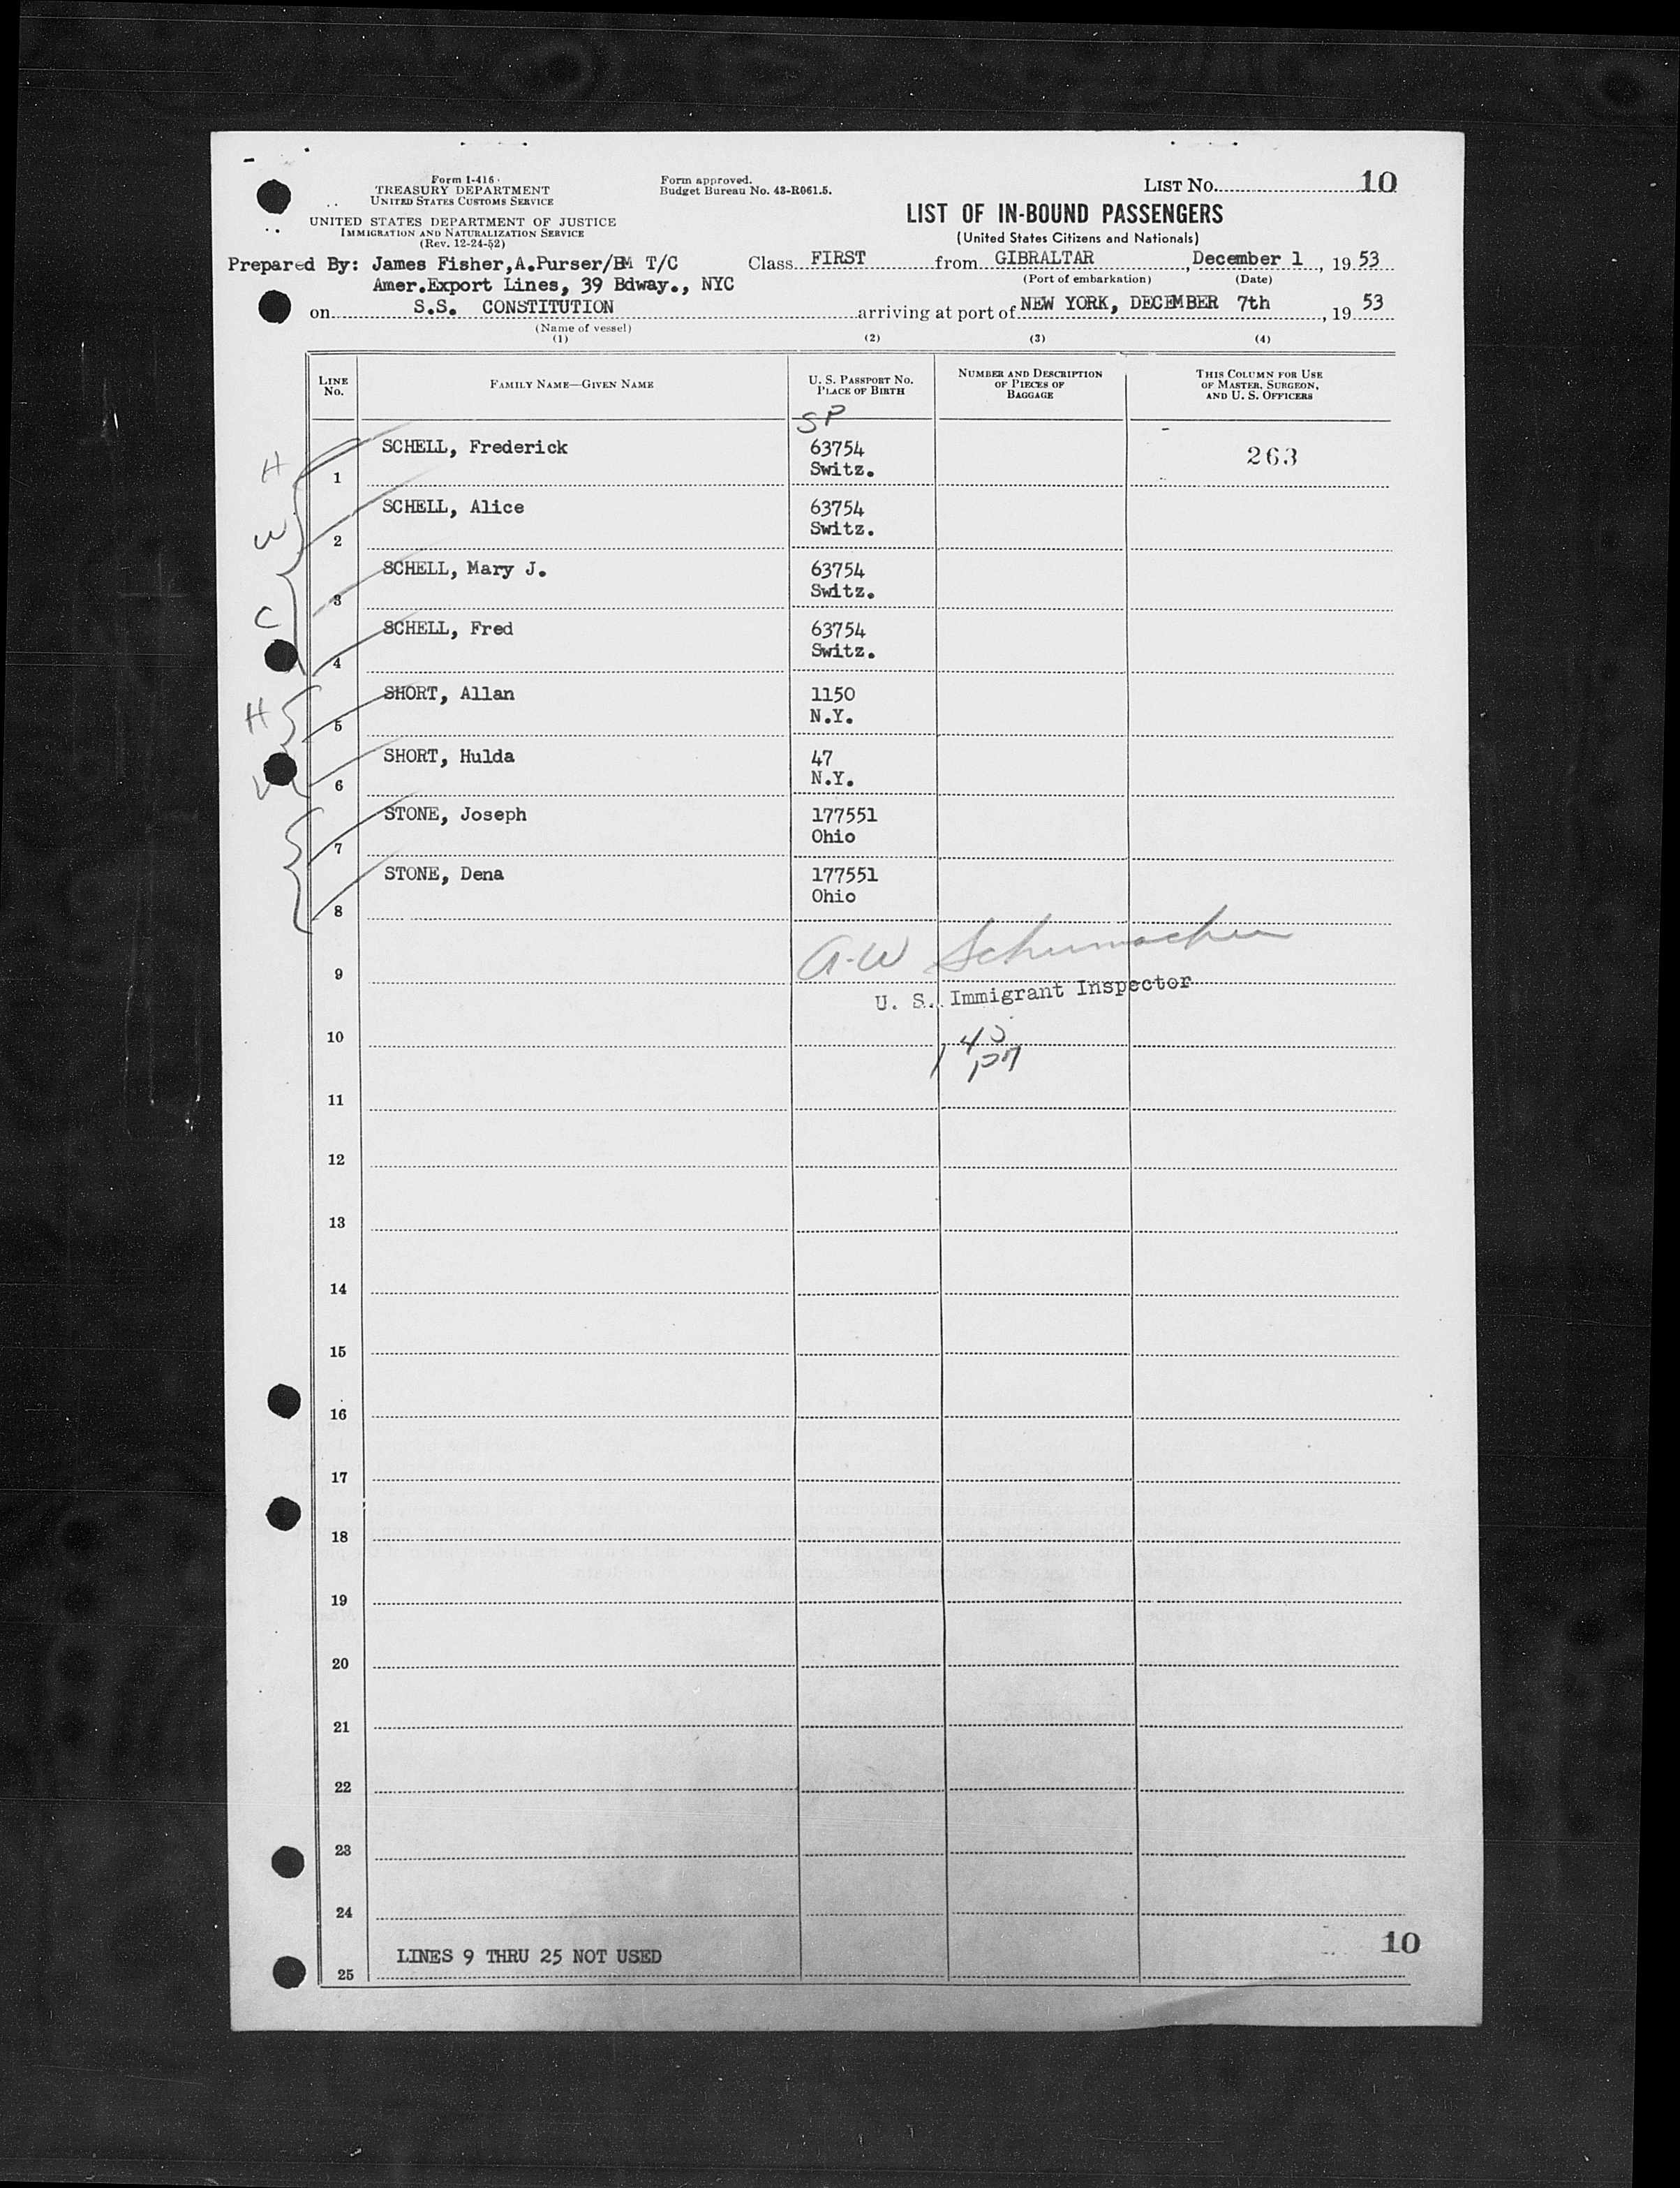 Form I-416
TREASURY DEPARTMENT
UNITED STATES CUSTOMS SERVICE
UNITED STATES DEPARTMENT OF JUSTICE
IMMIGRATION AND NATURALIZATION SERVICE
(Rev. 12-24-52)
Form approved.
Budget Bureau No. 43-R061.5.
LIST No. 10
LIST OF IN-BOUND PASSENGERS
(United States Citizens and Nationals)
Prepared By: James Fisher,A.Purser/BM T/C
Amer.Export Lines, 39 Bdway., NYC
Class FIRST from GIBRALTAR, December 1, 1953
(Port of embarkation) (Date)
on S.S. CONSTITUTION arriving at port of NEW YORK, DECEMBER 7th, 1953
(Name of vessel)
(1) (2) (3) (4)
LINE No. FAMILY NAME—GIVEN NAME U. S. PASSPORT NO. PLACE OF BIRTH NUMBER AND DESCRIPTION OF PIECES OF BAGGAGE THIS COLUMN FOR USE OF MASTER, SURGEON, AND U. S. OFFICERS
SP
H 1 SCHELL, Frederick 63754 Switz. 263
W 2 SCHELL, Alice 63754 Switz.
C 3 SCHELL, Mary J. 63754 Switz.
4 SCHELL, Fred 63754 Switz.
H 5 SHORT, Allan 1150 N.Y.
6 SHORT, Hulda 47 N.Y.
7 STONE, Joseph 177551 Ohio
8 STONE, Dena 177551 Ohio
A.W Schumacher
9
U. S. Immigrant Inspector
10
11
12
13
14
15
16
17
18
19
20
21
22
23
24
25 LINES 9 THRU 25 NOT USED
10